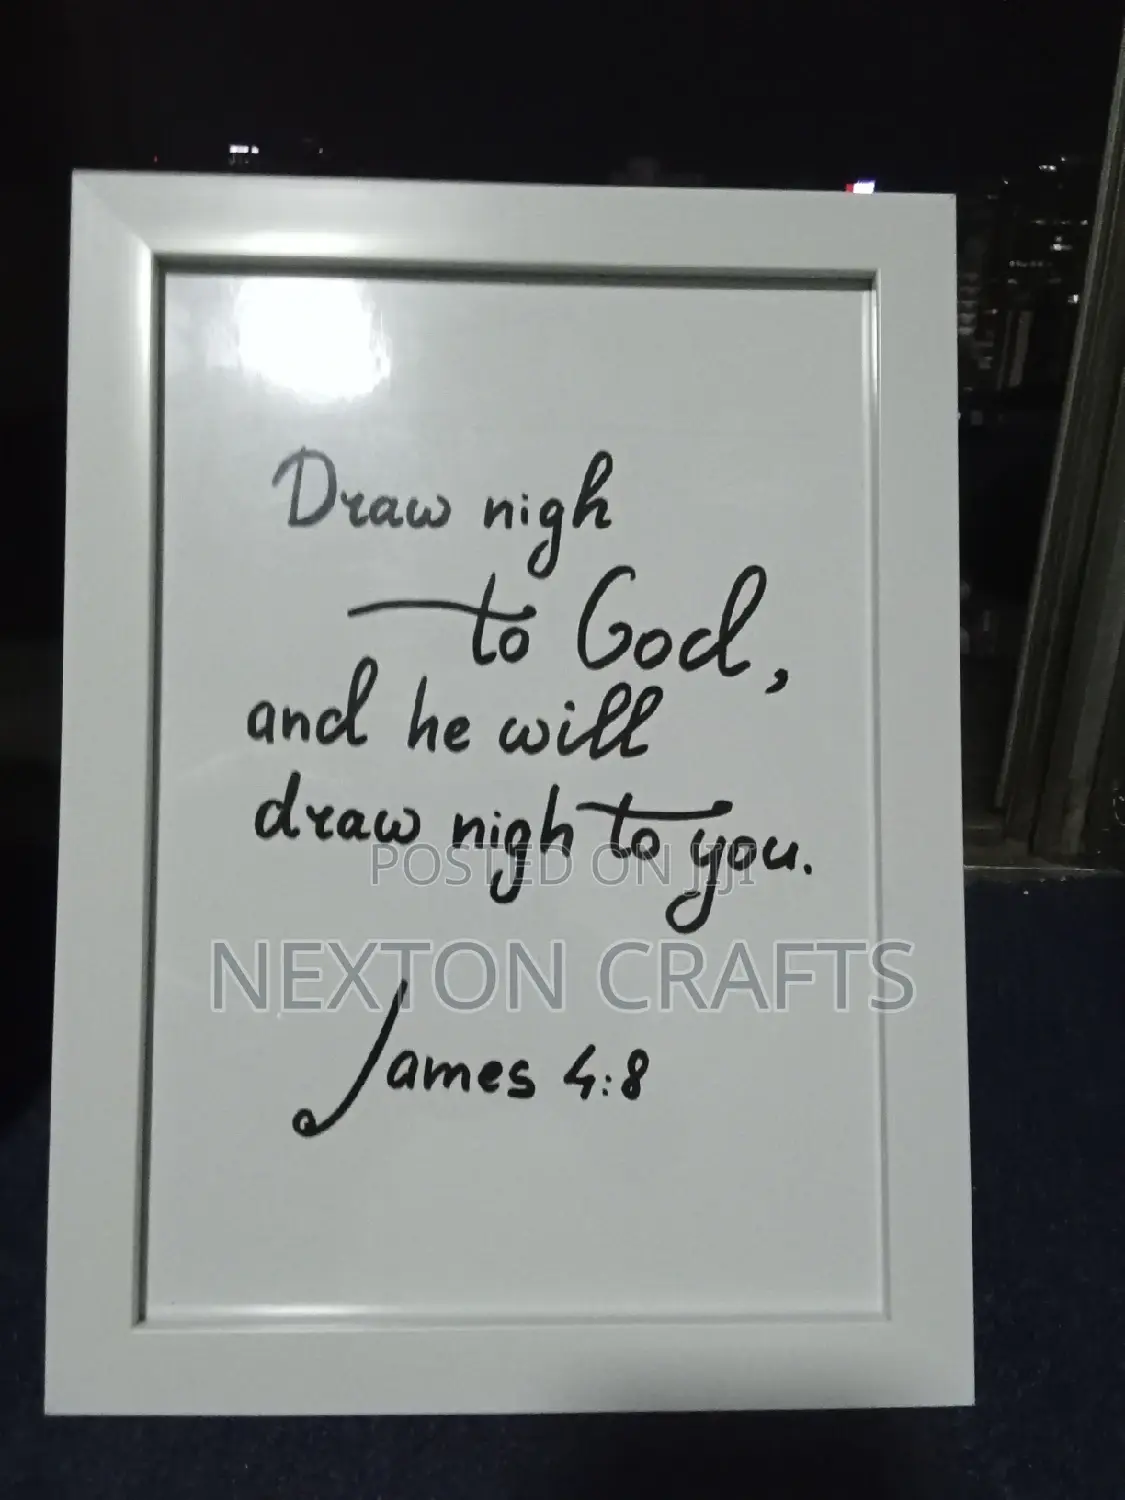 Draw nigh
to God,
and he will
draw nigh to you.
POSTED ON JIJI
NEXTON CRAFTS
James 4:8